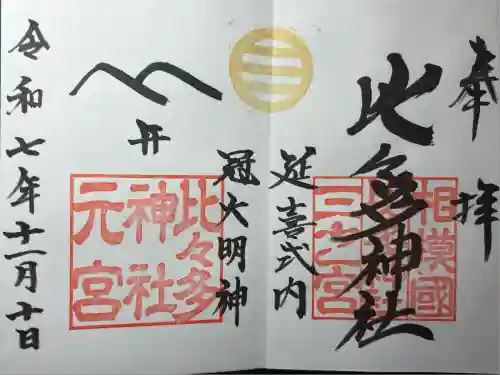 奉拝
比々多神社
相模國
三之宮
延喜式内
冠大明神
比々多
神社
元宮
开
令和七年十一月十日